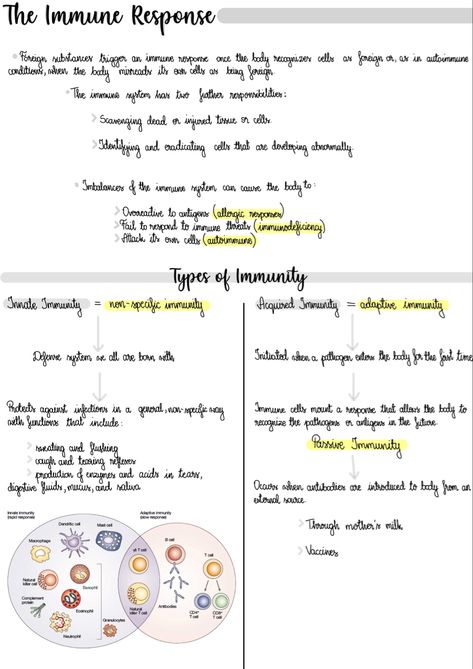 The Immune Response
Foreign substances trigger an immune response once the body recognizes cells as foreign or, as in autoimmune
conditions, when the body misreads its own cells as being foreign.
The immune system has two further responsibilities:
Scavenging dead or injured tissue or cells.
Identifying and eradicating cells that are developing abnormally.
Imbalances of the immune system can cause the body to:
Overreactive to antigens (allergic responses)
Fail to respond to immune threats (immunodeficiency)
Attack its own cells (autoimmune)
Types of Immunity
Innate Immunity = non-specific immunity
Defense system we all are born with
Protects against infections in a general, non-specific way
with functions that include:
sneating and flushing
cough and tearing reflexes
production of enzymes and acids in tears,
digestive fluids, mucus, and saliva
Acquired Immunity = adaptive immunity
Initiated when a pathogen enters the body for the first time
Immune cells mount a response that allows the body to
recognize the pathogens or antigens in the future.
Passive Immunity
Occurs when antibodies are introduced to body from an
external source
Through mother's milk
Vaccines
Innate immunity
(rapid response)
Dendritic cell
Mast cell
Macrophage
Natural
killer cell
Basophil
Complement
protein
Eosinophil
Granulocytes
Neutrophil
Adaptive immunity
(slow response)
γδ T cell
Natural
killer T cell
B cell
T cell
Antibodies
CD4+
T cell
CD8+
T cell